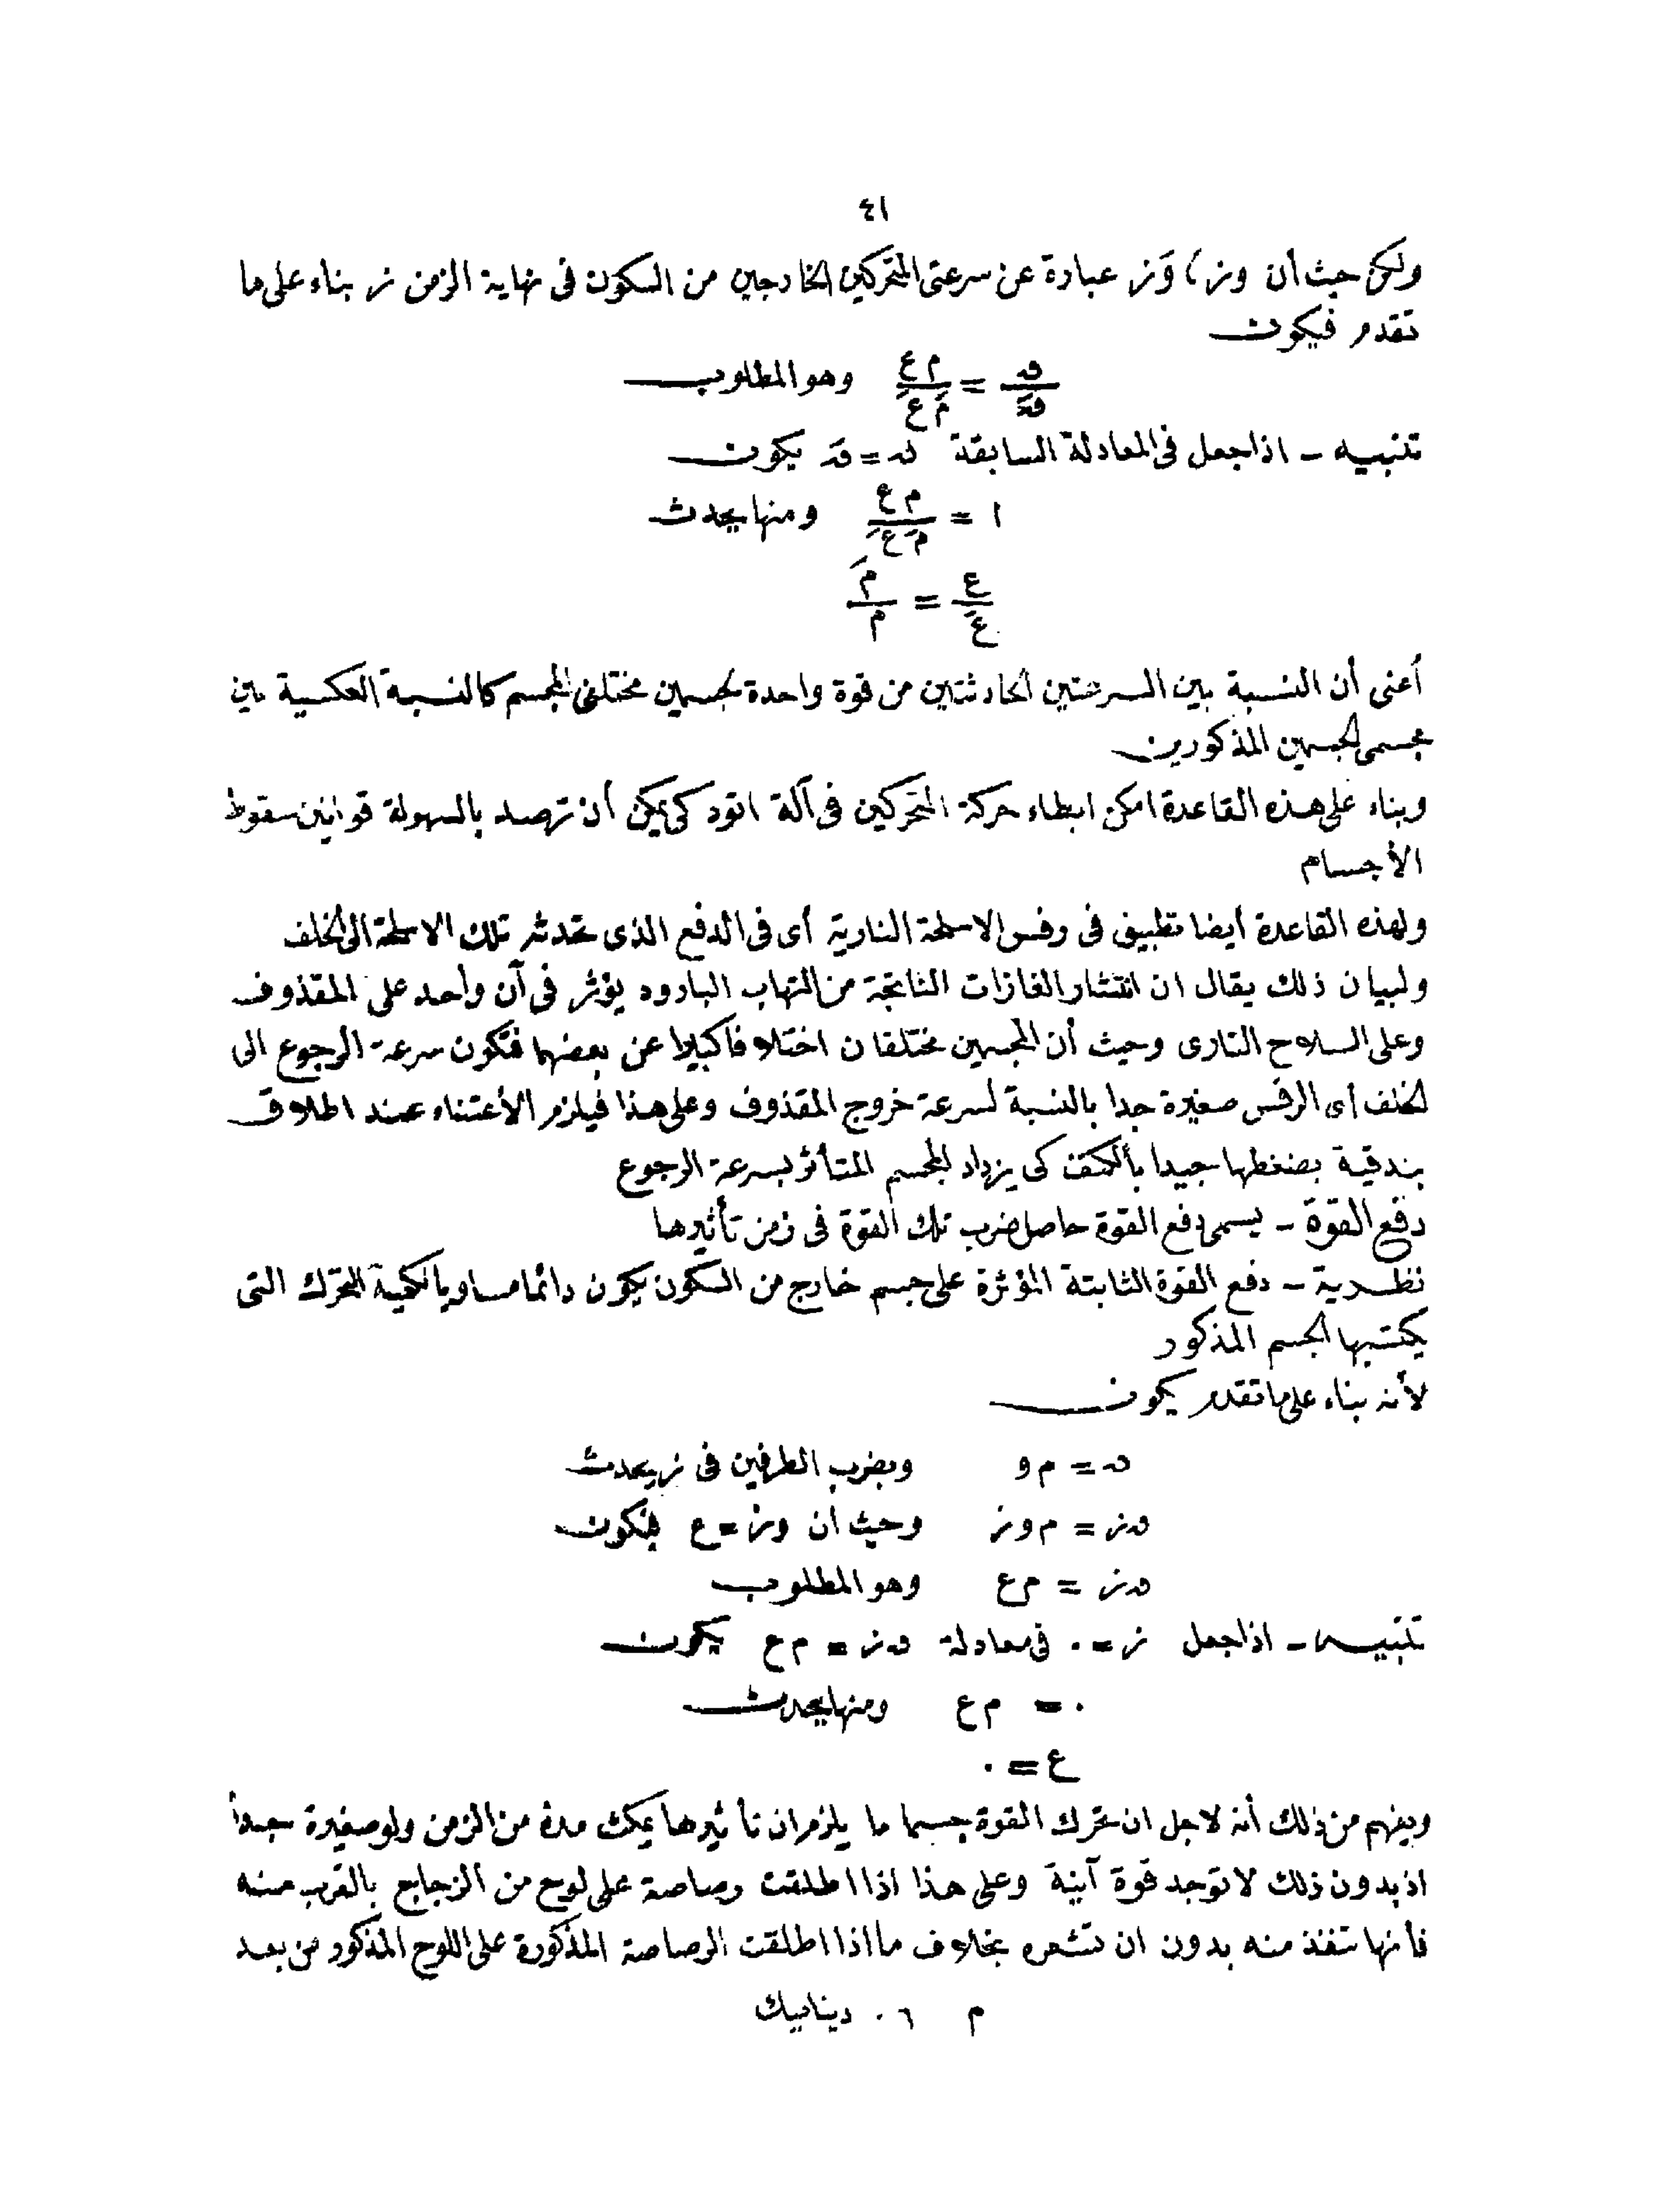 ٤١
ولكن حيث أن وز ، وَز عبارة عن سرعتى المتحركين الخارجين من السكون فى نهاية الزمن ز بناء على ما
تقدم فيكون
ق/قَ = م ع/مَ عَ وهو المطلوب
تنبيه ـ اذا جعل فى المعادلة السابقة ق = قَ يكون
١ = م ع/مَ عَ ومنها يحدث
ع/عَ = مَ/م
أعنى أن النسبة بين السرعتين الحادثتين من قوة واحدة لجسمين مختلفى المجسم كالنسبة العكسية بين
مجسمى الجسمين المذكورين
وبناء على هذه القاعدة امكن ابطاء حركة المتحركين فى آلة اتود كى يمكن أن ترصد بالسهولة قوانين سقوط
الأجسام
ولهذه القاعدة أيضا تطبيق فى رفس الاسلحة النارية أى فى الدفع الذى تحدثه تلك الاسلحة الى الخلف
ولبيان ذلك يقال ان انتشار الغازات الناتجة من التهاب البارود يؤثر فى آن واحد على المقذوف
وعلى السلاح النارى وحيث أن المجسمين مختلفان اختلافا كبيرا عن بعضهما فتكون سرعة الرجوع الى
الخلف أى الرفس صغيرة جدا بالنسبة لسرعة خروج المقذوف وعلى هذا فيلزم الأعتناء عند اطلاق
بندقية بضغطها جيدا بالكتف كى يزداد المجسم المتأثر بسرعة الرجوع
دفع القوة ـ يسمى دفع القوة حاصل ضرب تلك القوة فى زمن تأثيرها
نظرية ـ دفع القوة الثابتة المؤثرة على جسم خارج من السكون يكون دائما مساويا لكمية التحرك التى
يكتسبها الجسم المذكور
لأنه بناء على ما تقدم يكون
ق = م و وبضرب الطرفين فى ز يحدث
ق ز = م و ز وحيث ان و ز = ع فيكون
ق ز = م ع وهو المطلوب
تنبيه ـ اذا جعل ز = ٠ فى معادلة ق ز = م ع يكون
٠ = م ع ومنها يحدث
ع = ٠
ويفهم من ذلك أنه لاجل ان تحرك القوة جسما ما يلزم ان تأثيرها يمكث مدة من الزمن ولو صغيرة جدا
اذ بدون ذلك لا توجد قوة آنية وعلى هذا اذا اطلقت رصاصة على لوح من الزجاج بالقرب منه
فأنها تنفذ منه بدون ان تشعره بخلاف ما اذا اطلقت الرصاصة المذكورة على اللوح المذكور من بعد
م ٦ ٠ ديناميك